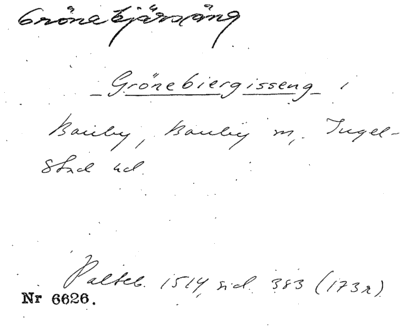 Grönebjärsäng
Grönebiergisseng i
Bauby, Bauby sn, Ingel-
stad hd.
Palteb. 1514, sid. 383 (173r)
Nr 6626.